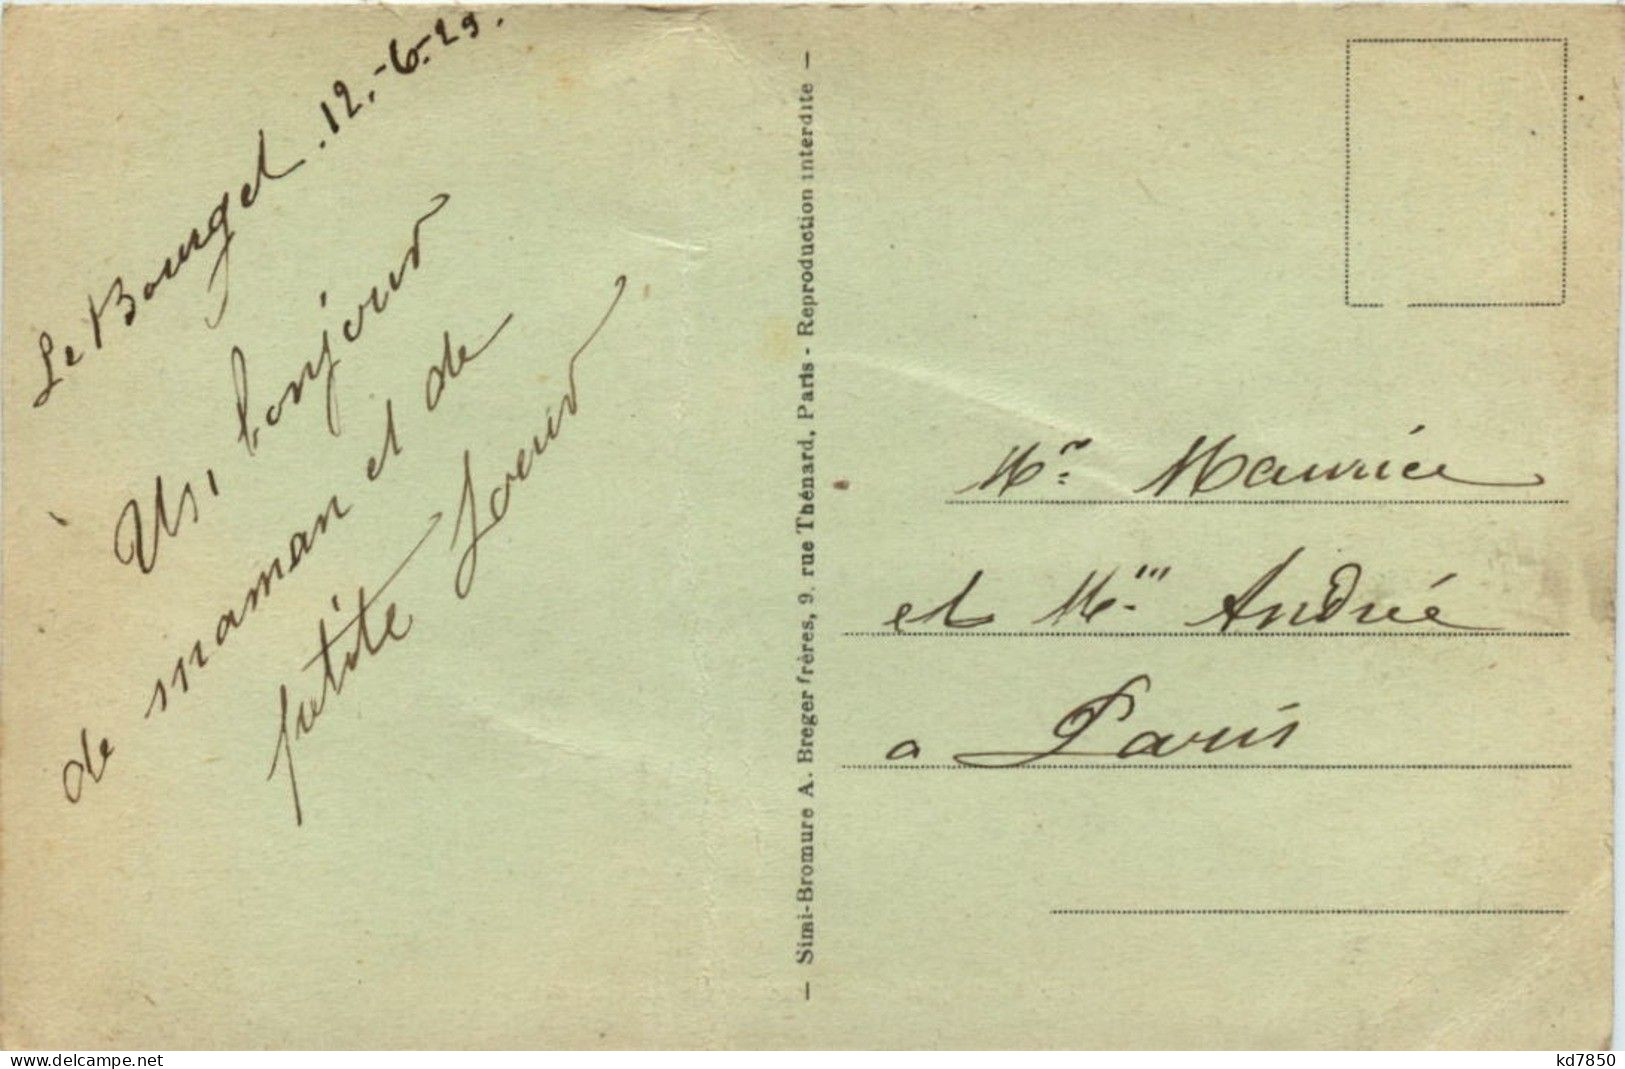 Le Bourget . 12.-6.-29.
Un bonjour
de maman et de
petite soeur
— Simi-Bromure A. Breger frères, 9, rue Thénard, Paris - Reproduction interdite —
Mr. Maurice
et Mlle Andrée
a Paris
www.delcampe.net
kd7850